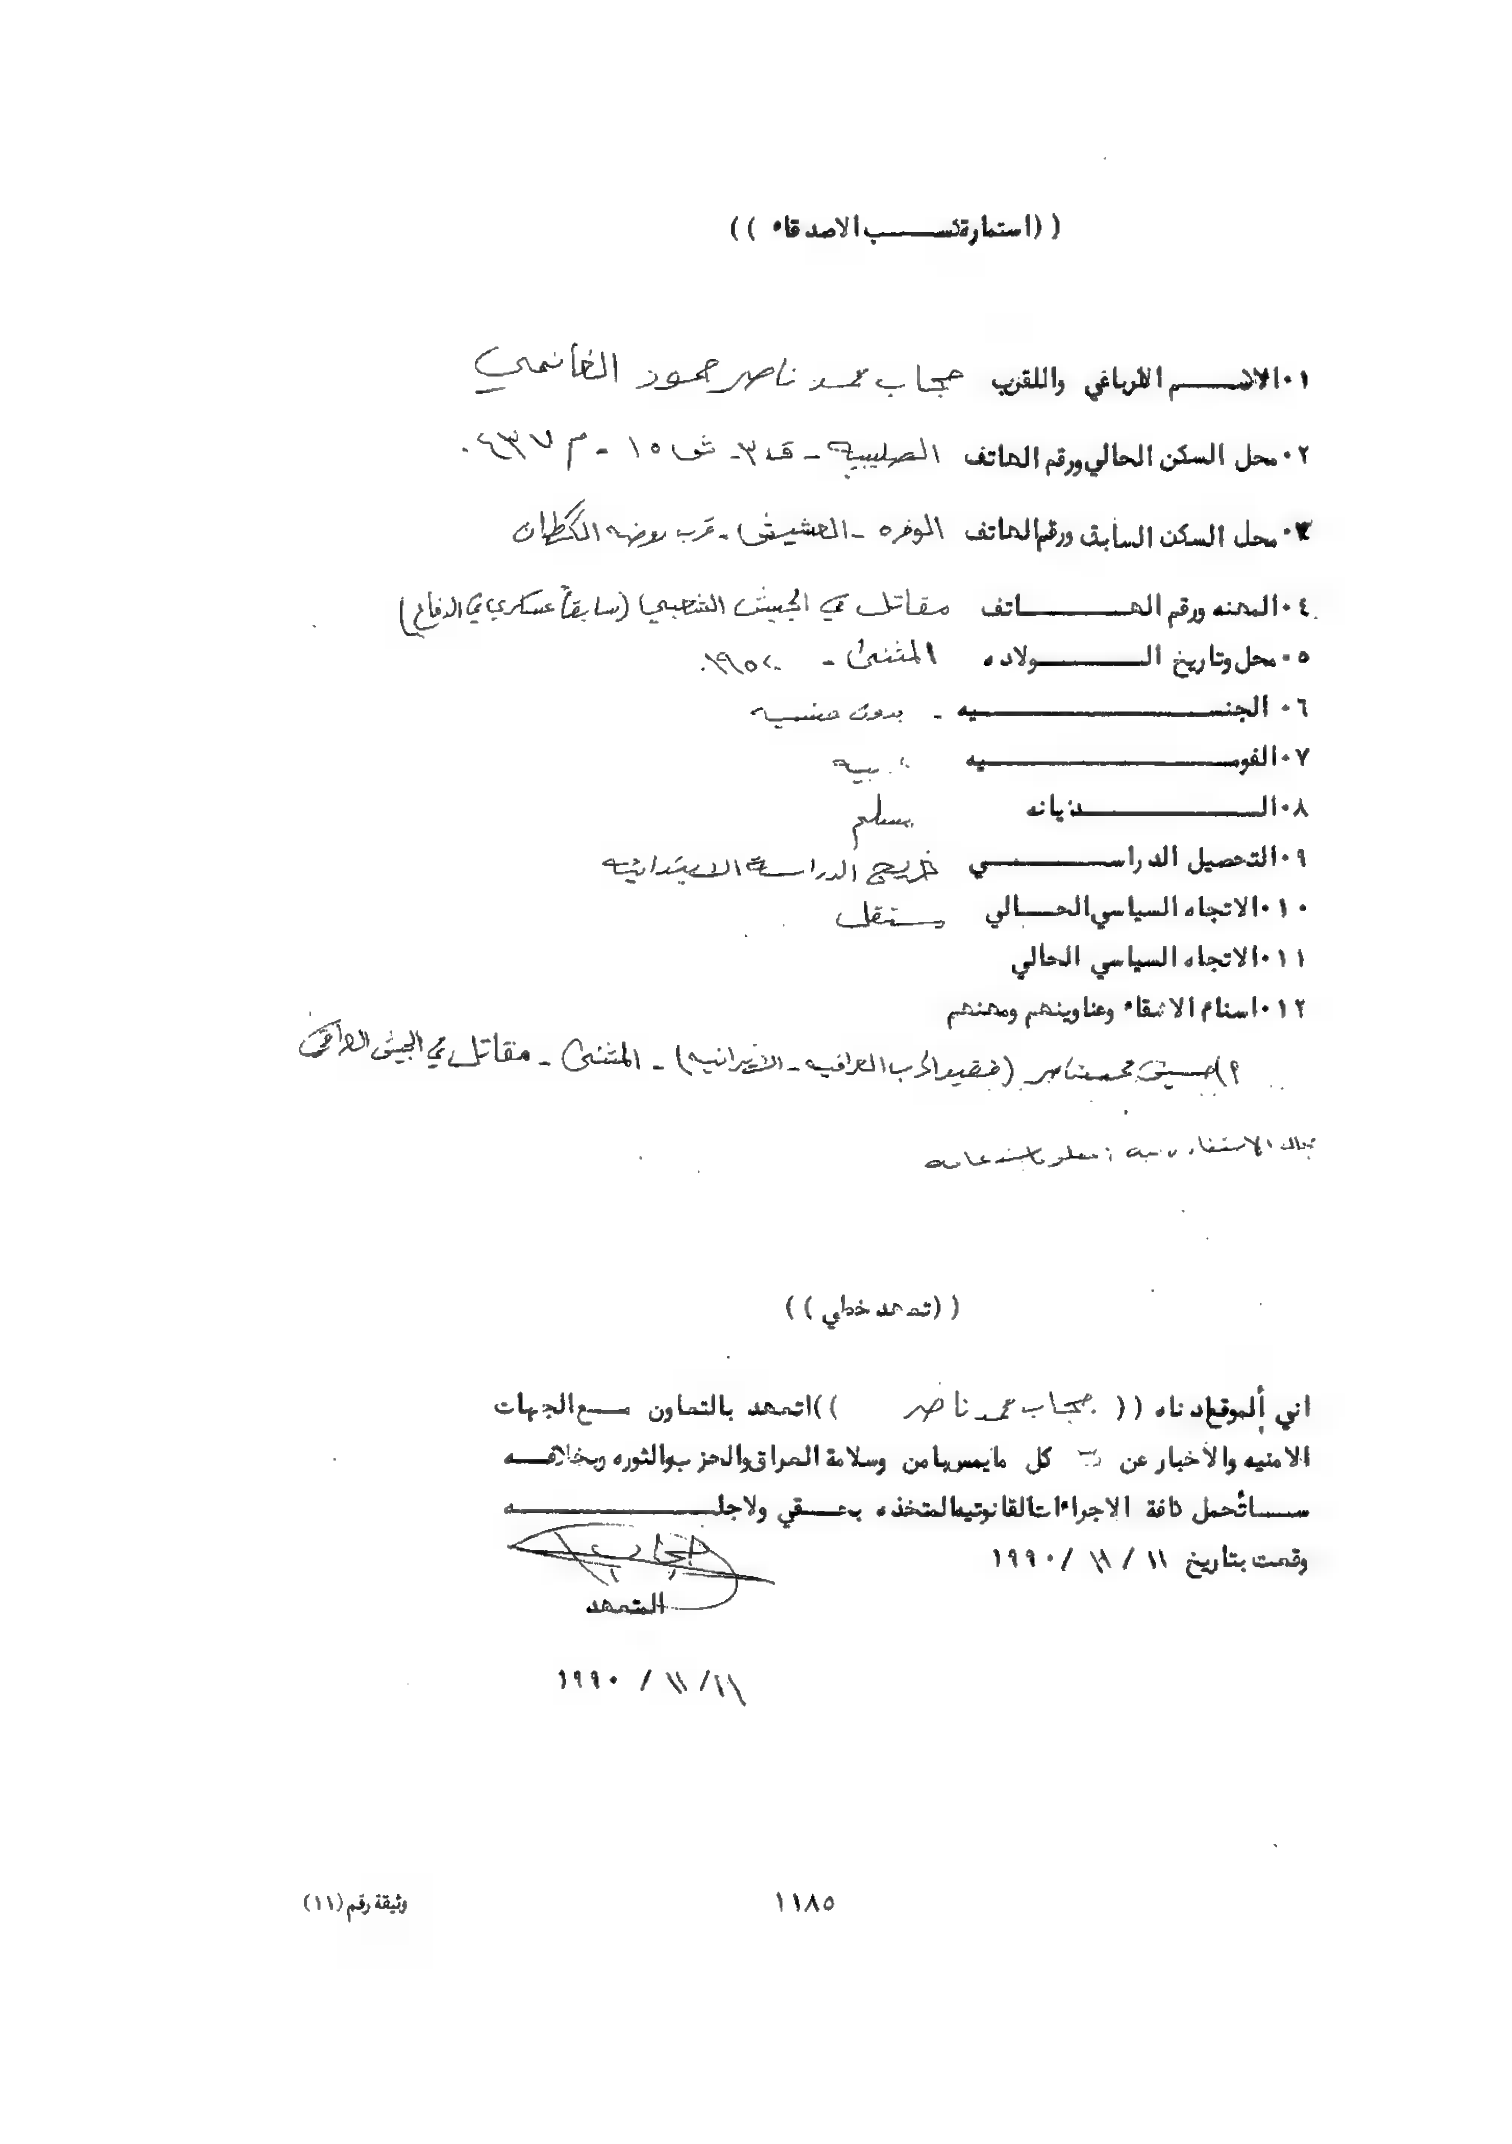 ((استمارة كسب الاصدقاء))
٠١ الاسم الرباعي واللقب حجاب محمد ناصر حمود الغانمي
٠٢ محل السكن الحالي ورقم الهاتف الصليبية - ق ٣ - ش ١٥ - م ٦٣٧
٠٣ محل السكن السابق ورقم الهاتف الوفره - العشيش - قرب روضه
٠٤ المهنه ورقم الهاتف مقاتل في الجيش الشعبي (سابقاً عسكري في الدفاع)
٠٥ محل وتاريخ الولاده المثنى - ١٩٥٢
٠٦ الجنسيه - بدون جنسيه
٠٧ القوميه
٠٨ الديانه مسلم
٠٩ التحصيل الدراسي خريج الدراسة الابتدائيه
٠١٠ الاتجاه السياسي الحالي مستقل
٠١١ الاتجاه السياسي الحالي
٠١٢ اسماء الاشقاء وعناوينهم ومهنهم
محمد ناصر (فقيد الحرب العراقيه - الايرانيه) - المثنى - مقاتل في الجيش العراقي
مجال الاستفاده منه : معلومات عامه
((تعهد خطي))
اني الموقع ادناه ((حجاب محمد ناصر)) اتعهد بالتعاون مع الجهات
الامنيه والاخبار عن كل مايمس امن وسلامة العراق والحزب والثوره وبخلافه
ساتحمل كافة الاجراءات القانونيه المتخذه بحقي ولاجله
وقعت بتاريخ ١١ / ١١ / ١٩٩٠
حجاب
المتعهد
١١ / ١١ / ١٩٩٠
وثيقة رقم (١١)
١١٨٥